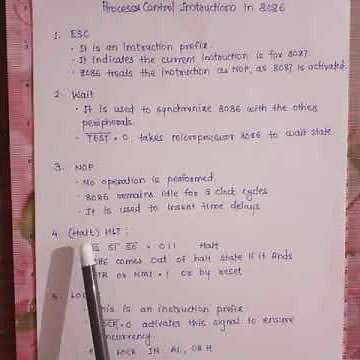 Process Control Instructions in 8086
1. ESC
• It is an Instruction prefix.
• It indicates the current instruction is for 8087
• 8086 treats the instruction as NOP, as 8087 is activated.
2. Wait
• It is used to synchronize 8086 with the other
peripherals.
• TEST = 0 takes microprocessor 8086 to wait state
3. NOP
• No operation is performed
• 8086 remains idle for 3 clock cycles
• It is used to insert time delays
4. (Halt) HLT :
S1 S0 = 011 Halt
86 comes out of halt state if it finds
or NMI = 1 or by reset
5.
This is an instruction prefix
= 0 activates this signal to ensure
concurrency.
LOCK IN AL, 08 H